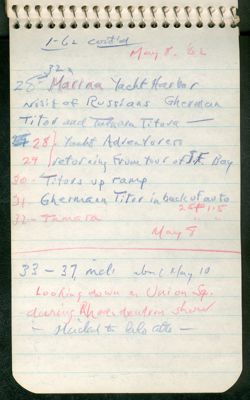 1-62 contld
May 8, '62
32
28 - Marina Yacht Harbor
visit of Russians Gherman
Titov and Tamara Titova —
28 - Yacht Adventurers
29 returning from tour of S.F. Bay
30 - Titovs up ramp
31 Ghermann Titov in back of auto
32 - Tamara " "
May 8
33 - 37 incl. May 10
Looking down on Union Sq.
during Rhododendron show